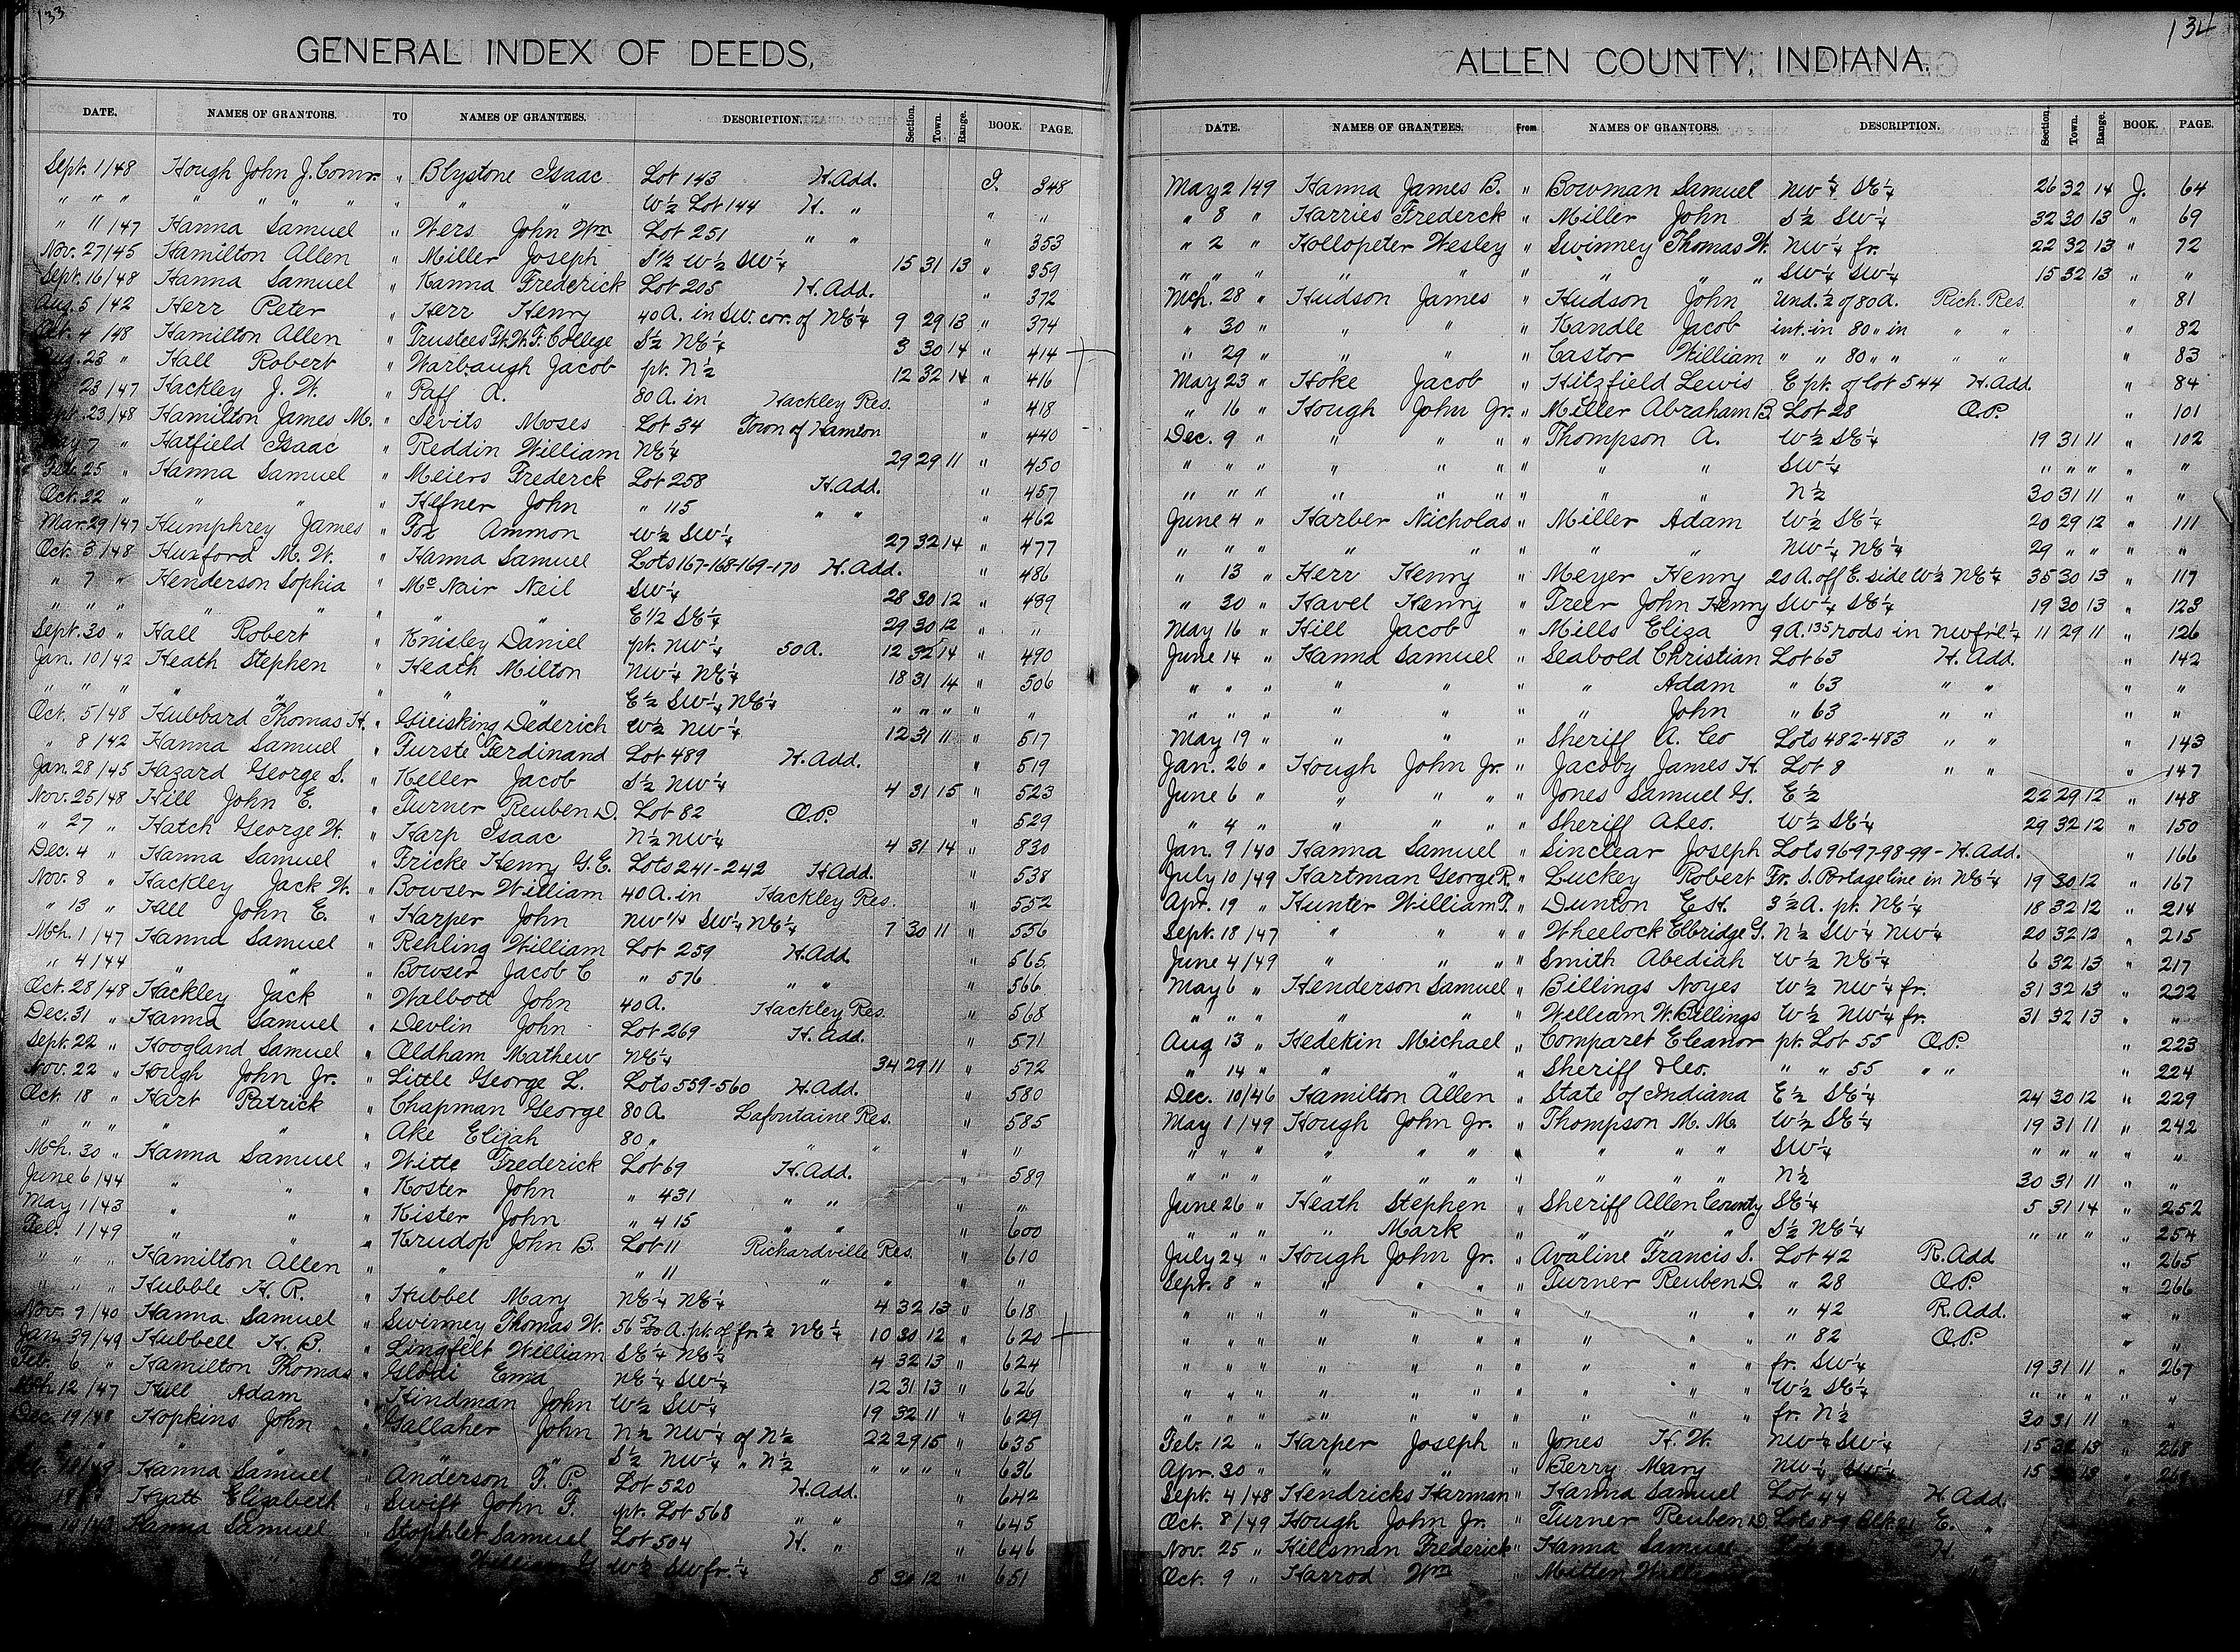 133
GENERAL INDEX OF DEEDS,
DATE. NAMES OF GRANTORS. TO NAMES OF GRANTEES. DESCRIPTION. Section. Town. Range. BOOK. PAGE.
Sept. 1/48 Hough John J. Comr. " Blystone Isaac Lot 143 H. Add. I. 348
" " " " " " " " " " W½ Lot 144 H. " " "
" 11/47 Hanna Samuel " Wers John Wm Lot 251 " " " 353
Nov. 27/45 Hamilton Allen " Miller Joseph S½ W½ SW¼ 15 31 13 " 359
Sept. 16/48 Hanna Samuel " Kanna Frederick Lot 205 H. Add. " 372
Aug. 5/42 Herr Peter " Herr Henry 40 A. in SW. cor. of NE¼ 9 29 13 " 374
Oct. 4/48 Hamilton Allen " Trustees Ft. W. F. College S½ NE¼ 3 30 14 " 414
Aug. 23 " Hall Robert " Warbaugh Jacob pt. N½ 12 32 14 " 416
23/47 Hackley J. W. " Paff A. 80 A. in Hackley Res. " 418
Sept. 23/48 Hamilton James M. " Devits Moses Lot 34 Town of Hamton " 440
May 7 " Hatfield Isaac " Reddin William NE¼ 29 29 11 " 450
Feb. 25 " Hanna Samuel " Meiers Frederck Lot 258 H. Add. " 457
Oct. 22 " " " " Hefner John " 115 " " " 462
Mar. 29/47 Humphrey James " Fox Ammon W½ SW¼ 27 32 14 " 477
Oct. 3/48 Huxford M. W. " Hanna Samuel Lots 167-168-169-170 H. Add. " 486
" 7 " Henderson Sophia " McNair Neil SW¼ 28 30 12 " 489
" " " " " " " " E 1/2 SE¼ 29 30 12 " "
Sept. 30 " Hall Robert " Knisley Daniel pt. NW¼ 50 A. 12 32 14 " 490
Jan. 10/42 Heath Stephen " Heath Milton NW¼ NE¼ 18 31 14 " 506
" " " " " " " " E½ SW¼ NE¼ " " " " "
Oct. 5/48 Hubbard Thomas H. " Gieisking Dederich W½ NW¼ 12 31 11 " 517
" 8/42 Hanna Samuel " Furste Ferdinand Lot 489 H. Add. " 519
Jan. 28/45 Hazard George S. " Keller Jacob S½ NW¼ 4 31 15 " 523
Nov. 25/48 Hill John E. " Turner Reuben D. Lot 82 O.P. " 529
" 27 " Hatch George W. " Harp Isaac N½ NW¼ 4 31 14 " 830
Dec. 4 " Hanna Samuel " Fricke Henry G. E. Lots 241-242 H. Add. " 538
Nov. 8 " Hackley Jack W. " Bowser William 40 A. in Hackley Res. " 552
" 13 " Hill John E. " Harper John NW 1/4 SW¼ NE¼ 7 30 11 " 556
Mch. 1/47 Hanna Samuel " Rehling William Lot 259 H. Add. " 565
" 4/44 " " " Bowser Jacob C " 576 " " " 566
Oct. 28/48 Hackley Jack " Walbott John 40 A. Hackley Res. " 568
Dec. 31 " Hanna Samuel " Devlin John Lot 269 H. Add. " 571
Sept. 22 " Hoogland Samuel " Oldham Mathew NE¼ 34 29 11 " 572
Nov. 22 " Hough John Jr. " Little George L. Lots 559-560 H. Add. " 580
Oct. 18 " Hart Patrick " Chapman George 80 A. Lafontaine Res. " 585
" " " " " " Ake Elijah 80 " " " " "
Mch. 30 " Hanna Samuel " Witte Frederick Lot 69 H. Add. " 589
June 6/44 " " " Koster John " 431 " " " "
May 1/43 " " " Kister John " 415 " " " 600
Feb. 1/49 " " " Krudop John B. Lot 11 Richardville Res. " 610
" " " Hamilton Allen " " " 11 " " " "
" " " Hubble H. R. " Hubbel Mary NE¼ NE¼ 4 32 13 " 618
Nov. 9/40 Hanna Samuel " Swinney Thomas W. A. pt. of fr. ½ NE¼ 10 30 12 " 620
Jan. 39/49 Hubbell H. B. " Lingfelt William SE¼ NE¼ 4 32 13 " 624
Feb. 6 " Hamilton Thomas " Glodi Ema NE¼ SW¼ 12 31 13 " 626
Mch. 12/47 Hull Adam " Hindman John W½ SW¼ 19 32 11 " 629
Dec. 19/48 Hopkins John " Gallaher John N½ NW¼ of N½ 22 29 15 " 635
" " " " S½ NW¼ " N½ " " " " 636
Hanna Samuel " Anderson F. P. Lot 520 H. Add. " 642
Hyatt Elizabeth " Swift John F. pt. Lot 568 " " " 645
Hanna Samuel " Stophlet Samuel Lot 504 H. " " 646
William G. W½ SW fr. ¼ 8 30 12 " 651
134
ALLEN COUNTY, INDIANA.
DATE. NAMES OF GRANTEES. From NAMES OF GRANTORS. DESCRIPTION. Section. Town. Range. BOOK. PAGE.
May 2/49 Hanna James B. " Bowman Samuel NW¼ SE¼ 26 32 14 J. 64
" 8 " Harries Frederck " Miller John S½ SW¼ 32 30 13 " 69
" 2 " Hollopeter Wesley " Swinney Thomas W. NW¼ fr. 22 32 13 " 72
" " " " " " " " " SW¼ SW¼ 15 32 13 " "
Mch. 28 " Hudson James " Hudson John Und. ½ of 80 A. Rich. Res. " 81
" 30 " " " " Kandle Jacob int. in 80 " in " " " 82
" 29 " " " " Castor William " " 80 " " " " " 83
May 23 " Hoke Jacob " Hitzfield Lewis E pt. of Lot 544 H. Add. " 84
" 16 " Hough John Jr. " Miller Abraham B. Lot 28 O.P. " 101
Dec. 9 " " " " " Thompson A. W½ SE¼ 19 31 11 " 102
" " " " " " " " " SW¼ " " " " "
" " " " " " " " " N½ 30 31 11 " "
June 4 " Harber Nicholas " Miller Adam W½ SE¼ 20 29 12 " 111
" " " " " " " " NW¼ NE¼ 29 " " " "
" 13 " Herr Henry " Meyer Henry 20 A. off E. side W½ NE¼ 35 30 13 " 117
" 30 " Havel Henry " Freer John Henry SW¼ SE¼ 19 30 13 " 123
May 16 " Hill Jacob " Mills Eliza 9 A. 135 rods in NW frl. ¼ 11 29 11 " 126
June 14 " Hanna Samuel " Seabold Christian Lot 63 H. Add. " 142
" " " " " " " Adam " 63 " " " "
" " " " " " " John " 63 " " " "
May 19 " " " " Sheriff A. Co Lots 482-483 " " " 143
Jan. 26 " Hough John Jr. " Jacoby James H. Lot 8 " " " 147
June 6 " " " " " Jones Samuel G. E½ 22 29 12 " 148
" 4 " " " " " Sheriff A Co. W½ SE¼ 29 32 12 " 150
Jan. 9/40 Hanna Samuel " Sinclear Joseph Lots 96-97-98-99- H. Add. " 166
July 10/49 Hartman George R. " Luckey Robert Fr. S. Portage line in NE¼ 19 30 12 " 167
Apr. 19 " Hunter William T. " Dunton E. H. 3½ A. pt. NE¼ 18 32 12 " 214
Sept. 18/47 " " " " Wheelock Elbridge G. N½ SW¼ NW¼ 20 32 12 " 215
June 4/49 " " " " Smith Abediah W½ NE¼ 6 32 13 " 217
May 6 " Henderson Samuel " Billings Noyes W½ NW¼ fr. 31 32 13 " 222
" " " " " " William W. Billings W½ NW¼ fr. 31 32 13 " "
Aug 13 " Hedekin Michael " Comparet Eleanor pt. Lot 55 O.P. " 223
" 14 " " " " Sheriff &Co. " " 55 " " " 224
Dec. 10/46 Hamilton Allen " State of Indiana E½ SE¼ 24 30 12 " 229
May 1/49 Hough John Jr. " Thompson M. M. W½ SE¼ 19 31 11 " 242
" " " " " " " " " " SW¼ " " " " "
" " " " " " " " " " N½ 30 31 11 " "
June 26 " Heath Stephen " Sheriff Allen County SE¼ 5 31 14 " 252
" " " " Mark " " " " S½ NE¼ " " " " 254
July 24 " Hough John Jr. " Avaline Francis S. Lot 42 R. Add " 265
Sept. 8 " " " " " Turner Reuben D. " 28 O.P. " 266
" " " " " " " " " " " 42 R. Add. " "
" " " " " " " " " " " 82 O.P. " "
" " " " " " " " " " fr. SW¼ 19 31 11 " 267
" " " " " " " " " " W½ SE¼ " " " " "
" " " " " " " " " " fr. N½ 30 31 11 " "
Feb. 12 " Harper Joseph " Jones H. W. NW¼ SW¼ 15 32 13 " 268
Apr. 30 " " " " Berry Mary NW¼ SW¼ 15 13 "
Sept. 4/48 Hendricks Harman " Hanna Samuel Lot 44 H. Add.
Oct. 8/49 Hough John Jr. " Turner Reuben D. Lots 8-9 Blk. E. "
Nov. 25 " Hillsman Frederick " Hanna Samuel H.
Oct. 9 " Harrod Wm " Mitten